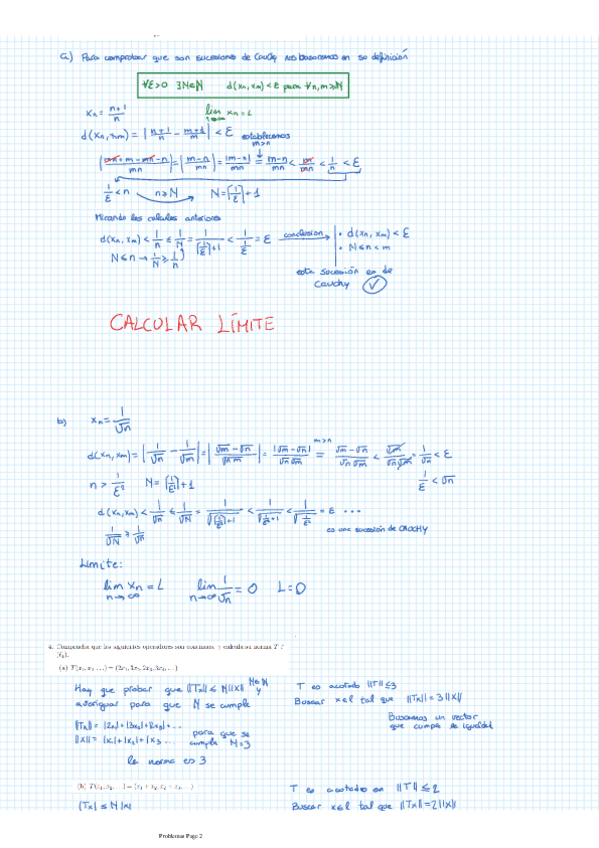 a) Para comprobar que son sucesiones de Cauchy nos basaremos en su definición
∀ε>0 ∃N∈ℕ d(xn,xm)<ε para ∀n,m≥N
xn = n+1/n
lim xn = 1
d(xn,xm) = |n+1/n - m+1/m| < ε establecemos
m>n
|mn+m-mn-n/mn| = |m-n/mn| = |m-n|/mn = m-n/mn < m/mn < 1/n < ε
1/ε < n n≥N N=[1/ε]+1
Mirando los calculos anteriores
d(xn,xm) < 1/n ≤ 1/N = 1/[1/ε]+1 < 1/1/ε = ε conclusion • d(xn,xm)<ε
N≤n → 1/N ≥ 1/n • N≤n<m
esta sucesión es de
Cauchy ✓
CALCULAR LÍMITE
b) xn = 1/√n
m>n
d(xn,xm) = |1/√n - 1/√m| = |√m-√n/√nm| = |√m-√n|/√n√m = √m-√n/√n√m < √m/√n√m = 1/√n < ε
1/ε < √n
n > 1/ε² N=[1/ε²]+1
d(xn,xm) < 1/√n ≤ 1/√N = 1/√[1/ε²]+1 < 1/√1/ε²+1 < 1/√1/ε² = ε ...
1/√N ≥ 1/√n
es una sucesión de CAUCHY
Límite:
lim xn = L lim 1/√n = 0 L=0
n→∞ n→∞
4. Comprueba que los siguientes operadores son continuos, y calcula su norma T :
(a) T(x1, x2, ...) = (2x1, 3x2, 2x3, 3x4, ...)
Hay que probar que ||Tx|| ≤ M||x|| M∈ℕ y
averiguar para que M se cumple
||Tx|| = |2x1|+|3x2|+|2x3|+...
||x|| = |x1|+|x2|+|x3 ...
para que se
cumple M=3
la norma es 3
T es acotado ||T||≤3
Buscar x∈l tal que ||Tx||=3||x||
Buscamos un vector
que cumple la igualdad
|Tx| ≤ M|x|
T es acotado en ||T|| ≤ 2
Buscar x∈l tal que ||Tx||=2||x||
Problemas Page 2